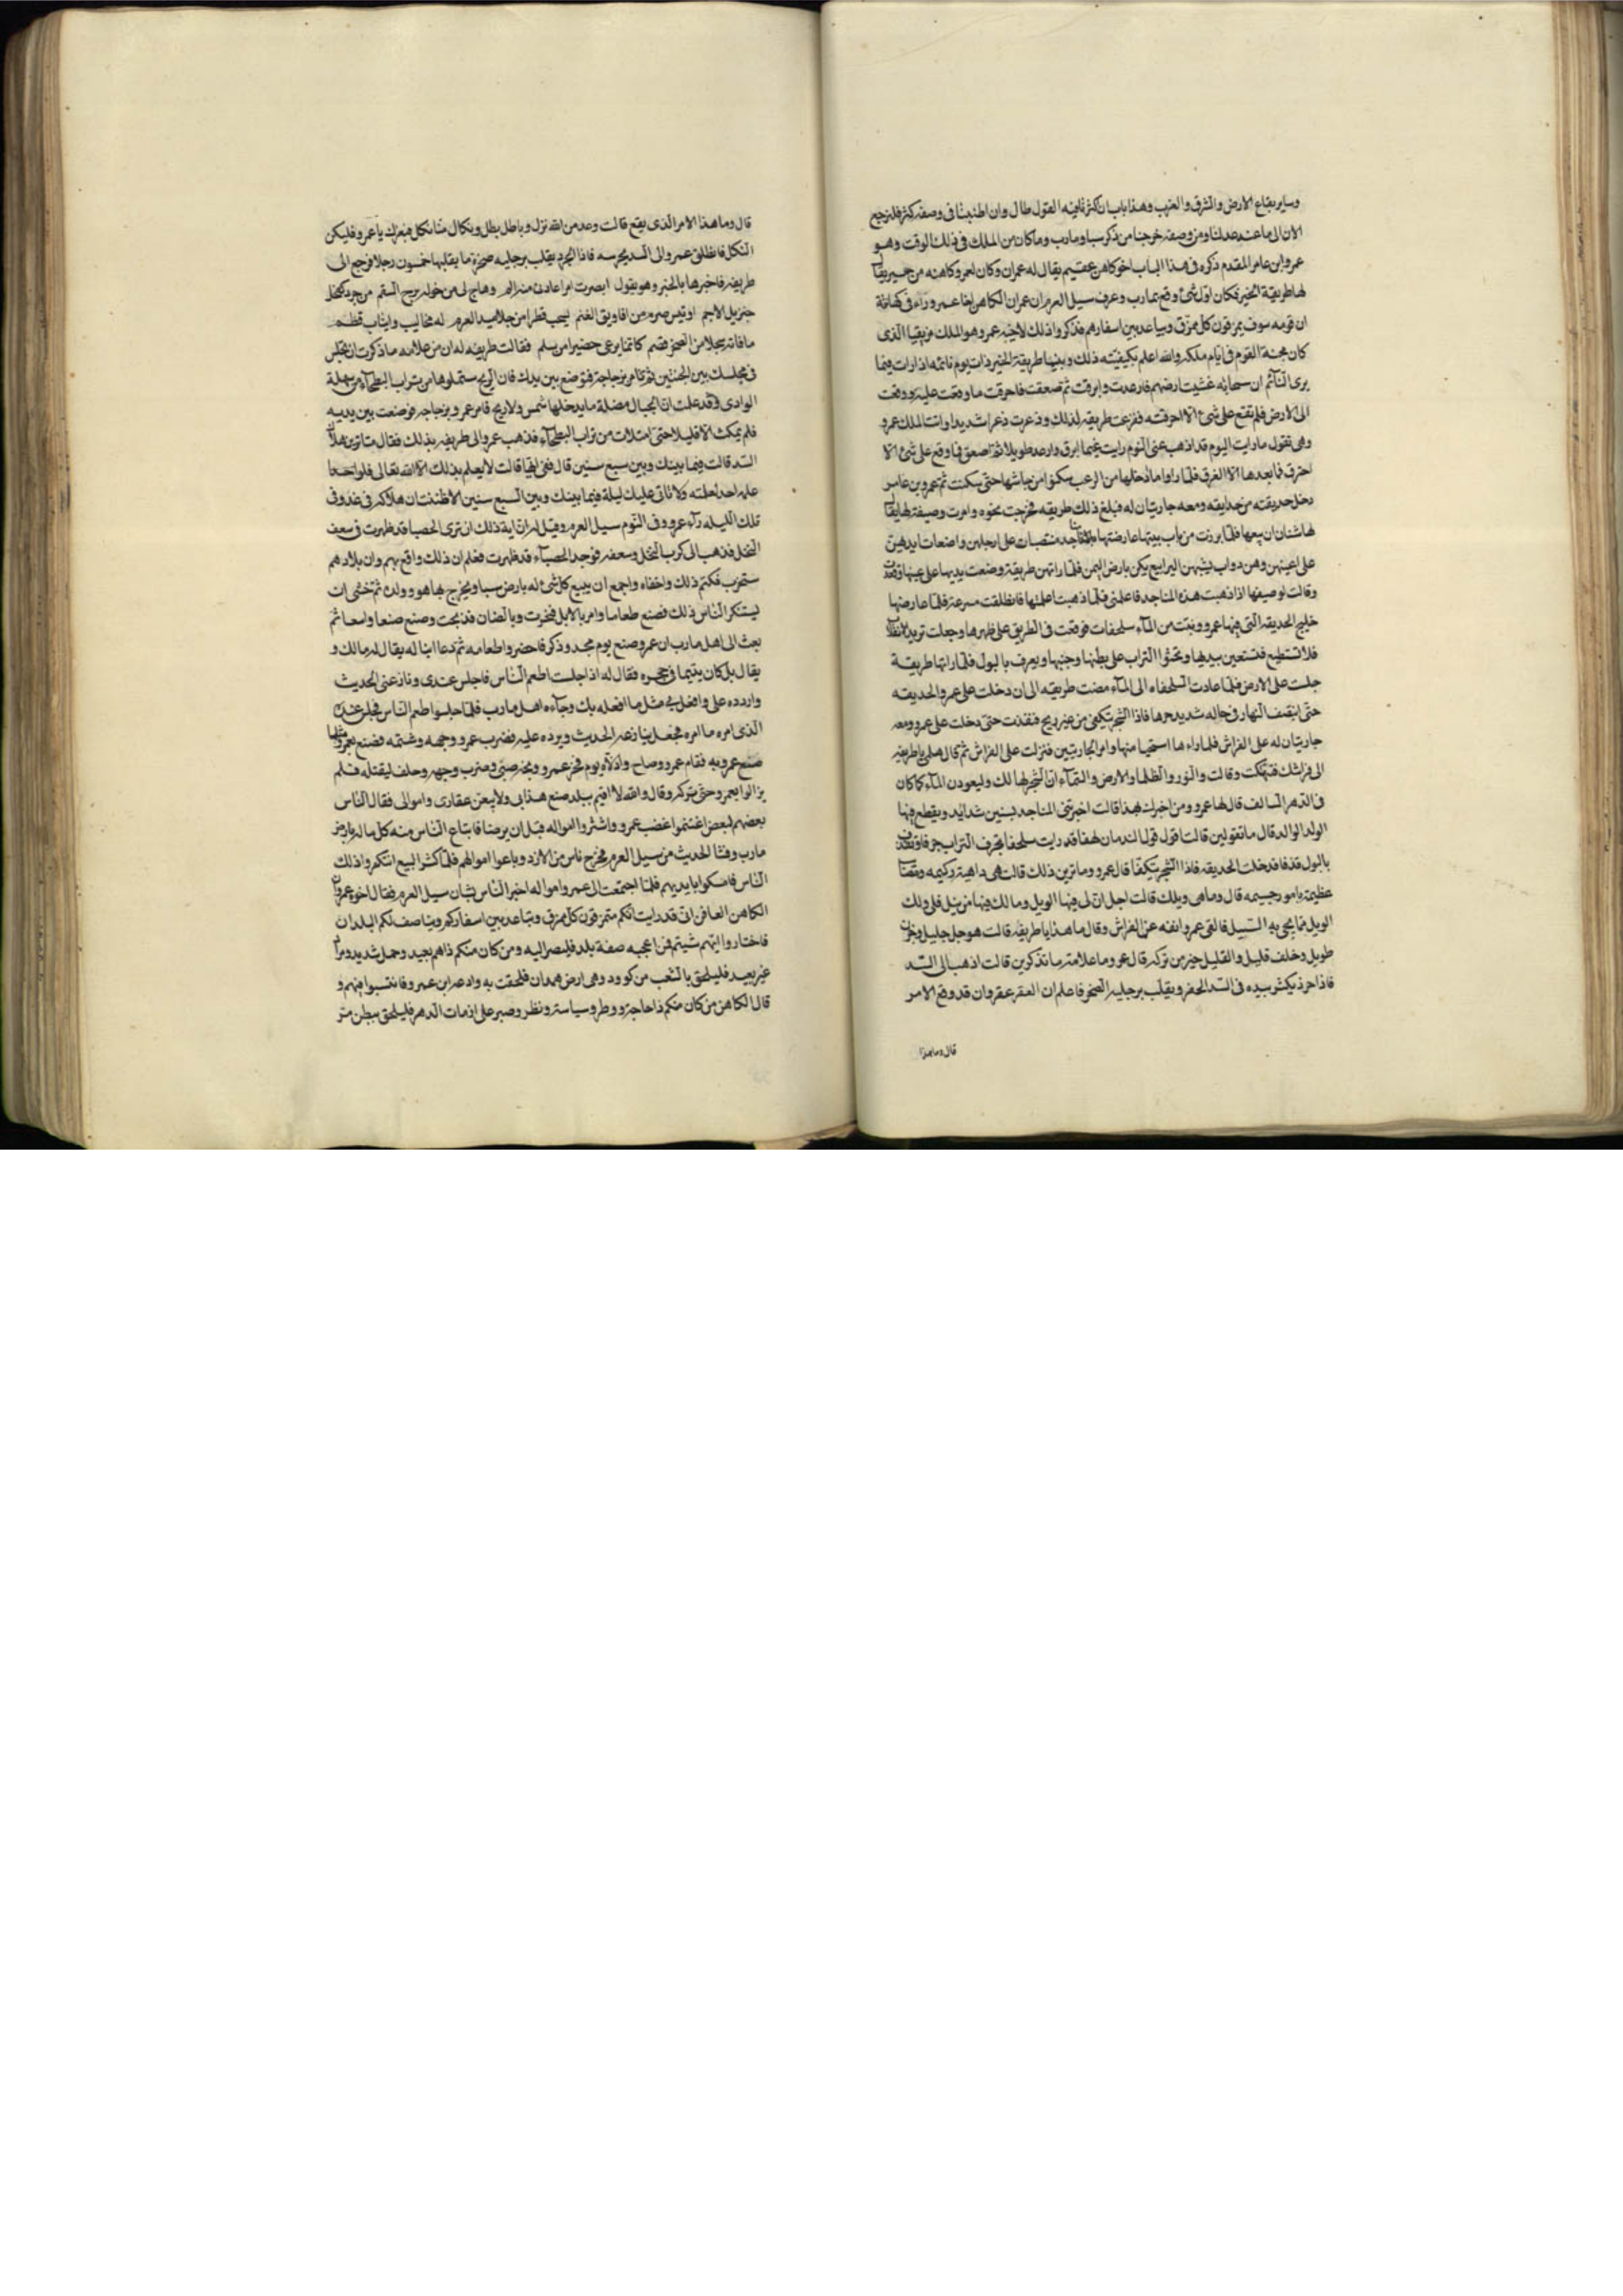 وساير بقاع الارض والشرق والغرب وهذا باب ان كثر فيه القول طال وان اطنبنا فى وصفه كثر فلنرجع
الان الى ما عنه عدلنا ومن وصفه خرجنا من ذكر سبا ومارب وما كان من الملك فى ذلك الوقت وهو
عمرو ابن عامر المقدم ذكره فى هذا الباب اخو كاهن عقيم يقال له عمران وكان لعمرو كاهنه من حمير يقال
لها طريفة الخير فكان اول شئ وقع بمارب وعرف سيل العرم ان عمران الكاهن اخا عمرو راء فى كهانته
ان قومه سوف يمزقون كل ممزق ويباعد بين اسفارهم فذكر ذلك لاخيه عمرو وهو الملك مزيقيا الذى
كان محنة القوم فى ايام ملكه والله اعلم بكيفيته ذلك وبينها طريفة الخير ذات يوم نائمه اذ رات فيما
يرى النآئم ان سحابه غشيت ارضهم فارعدت وابرقت ثم صعقت فاحرقت ما وقعت عليه ووقعت
الى الارض فلم تقع على شئ الا احرقته ففزعت طريفه لذلك وذعرت ذعرا شديدا واتت الملك عمرو
وهى تقول ما رايت اليوم قد اذهب عنى النوم رايت غيما ابرق وارعد طويلا ثم اصعق فما وقع على شئ الا
احترق فما بعدها الا الغرق فلما راوا ما دخلها من الرعب سكنوا من جاشها حتى سكنت ثم عمرو بن عامر
دخل حديقته من حدايقه ومعه جاريتان له فبلغ ذلك طريفه فخرجت نحوه وامرت وصيفة لها يقال
لها سنان ان يتبعها فلما برزت من باب بيتها عارضتها مناجد منتصبات على ارجلهن واضعات ايديهن
على اعينهن وهن دواب يشبهن اليرابيع يكن بارض اليمن فلما راتهن طريفة وضعت يديها على عينها وقعدت
وقالت لوصيفها اذا ذهبت هذه المناجد فاعلمنى فلما ذهبت اعلمتها فانطلقت مسرعة فلما عارضها
خليج الحديقه التى فيها عمرو وثبت من المآء سلحفات فوقعت فى الطريق على ظهرها وجعلت تريد الانقلاب
فلا تستطيع فتستعين بيديها وتحثوا التراب على بطنها وجنبها ويعرف بالبول فلما راتها طريفة
جلست على الارض فلما عادت السلحفاه الى المآء مضت طريفه الى ان دخلت على عمرو الحديقه
حتى انتصف النهار فى حاله شديد حرها فاذا الشجر تتكفى من غير ريح فنفذت حتى دخلت على عمرو ومعه
جاريتان له على الفراش فلما راءها استحيا منها وامر الجاريتين فنزلت على الفراش ثم قال هلمى يا طريفه
الى فراشك فتهكت وقالت والنور والظلما والارض والسمآء ان الشجر لهالك وليعودن المآء كما كان
فى الدهر السالف قال لها عمرو ومن اخبرك بهذا قالت اخبرتنى المناجد بسنين شدايد ويقطع فيها
الولد الوالد قال ما تقولين قالت اقول قول الندمان لهفا قد رايت سلحفا تجرف التراب جرفا وتقذف
بالبول قذفا فدخلت الحديقه فاذا الشجر تتكفا قال عمرو وما ترين ذلك قالت هى داهية ركيمه ومصائب
عظيمة بامور جسيمه قال وما هى ويلك قالت اجل ان لى فيها الويل وما لك فيها من نيل فلى ولك
الويل مما يجى به السيل فالقى عمرو نفسه عن الفراش وقال ما هذا يا طريفه قالت هو جل جليل وحزن
طويل وخلف قليل والقليل خير من تركه قال عمرو وما علامة ما تذكرين قالت اذهب الى السد
فاذا جرذ يكثر بيده فى السد الحفر ويقلب برجليه الصخر فاعلم ان العقر عقر وان قد وقع الامر
قال وما هذا
قال وما هذا الامر الذى يقع قالت وعد من الله نزل وباطل بطل ونكال منا نكل فبغيرك يا عمرو فليكن
النكل فانطلق عمرو الى السد يحرسه فاذا الجرذ يقلب برجليه صخرة ما يقلبها خمسون رجلا فرجع الى
طريفه فاخبرها بالخبر وهو يقول ابصرت امرا عادنى منه الم وهاج لى من هوله برح السقم من جرذ كفحل
خنزير الاجم او تيس صرم من افاريق الغنم يسحب قطرا من جلاميد العرم له مخاليب وانياب قظم
ما فاته سحلا من الصخر قصم كانما يرعى حضيرا من سلم فقالت طريفه له ان من علامه ما ذكرت ان تجلس
فى مجلسك بين الجنتين ثم تامر بزجاجة فتوضع بين يديك فان الريح ستملوها من تراب البطحآء من سهلة
الوادى وقد علمت ان الجبال مضلة ما يدخلها شمس ولا ريح فامر عمرو بزجاجه فوضعت بين يديه
فلم يمكث الا قليلا حتى امتلات من تراب البطحآء فذهب عمرو الى طريفه بذلك فقال متا ترين هلاك
السد قالت فيما بينك وبين سبع سنين قال ففى ايها قالت لا يعلم بذلك الا الله تعالى فلو احد
علم احد لعلمته ولا تاتى عليك ليلة فيما بينك وبين السبع سنين الا ظننت ان هلاكه فى غد وفى
تلك الليله رآء عمرو فى النوم سيل العرم وقيل له ان اية ذلك ان ترى الحصبا قد ظهرت فى سعف
النخل فذهب الى كرب النخل وسعفه فوجد الحصبآء قد ظهرت فعلم ان ذلك واقع بهم وان بلادهم
ستخرب فكتم ذلك واخفاه واجمع ان يبيع كل شئ له بارض سبا ويخرج بها هو وولده ثم خشى ان
يستنكر الناس ذلك فصنع طعاما وامر بالابل فنحرت وبالضان فذبحت وصنع صنعا واسعا ثم
بعث الى اهل مارب ان عمرو صنع يوم مجد وذكر فاحضروا طعامه ثم دعا ابنا له يقال له مالك و
يقال بل كان يتيما فى حجره فقال له اذا جلست اطعم الناس فاجلس عندى ونازعنى الحديث
واردده على وافعل بى مثل ما افعله بك وجآءه اهل مارب فلما جلسوا اطعم الناس فجلس عنده
الذى امره ما امره فجعل ينازعه الحديث ويرده عليه فضرب عمرو وجهه وشتمه فصنع بعمرو مثلما
صنع عمرو به فقام عمرو وصاح واذلاه يوم فخر عمرو ومجده صبى وضرب وجهه وحلف ليقتله فلم
يزالوا بعمرو حتى تركه وقال والله لا اقيم ببلد صنع هذا بى ولا بيعن عقارى واموالى فقال الناس
بعضهم لبعض اغتنموا غضب عمرو واشتروا امواله قبل ان يرضا فابتاع الناس منه كل ماله بارض
مارب وفشا الحديث من سيل العرم فخرج ناس من الازد وباعوا اموالهم فلما كثر البيع استنكروا ذلك
الناس فامسكوا بايديهم فلما اجتمعت ال عمرو وامواله اخبر الناس بشان سيل العرم فقال اخوه عمران
الكاهن العاقر انى قد رايت انكم ستمزقون كل ممزق ويتباعد بين اسفاركم وينا صف لكم البلدان
فاختاروا ايتهم شيتم فمن اعجبه صفة بلد فليصر اليه ومن كان منكم ذا هم بعيد وحمل شديد ومراد
غير بعيد فليلحق بالشعب من كوود وهى ارض همدان فلحقت به وادعه ابن عمرو فانتسبوا فيهم و
قال الكاهن من كان منكم ذا حاجة ووطر وسياسة ونظر وصبر على ازمات الدهر فليلحق ببطن مر